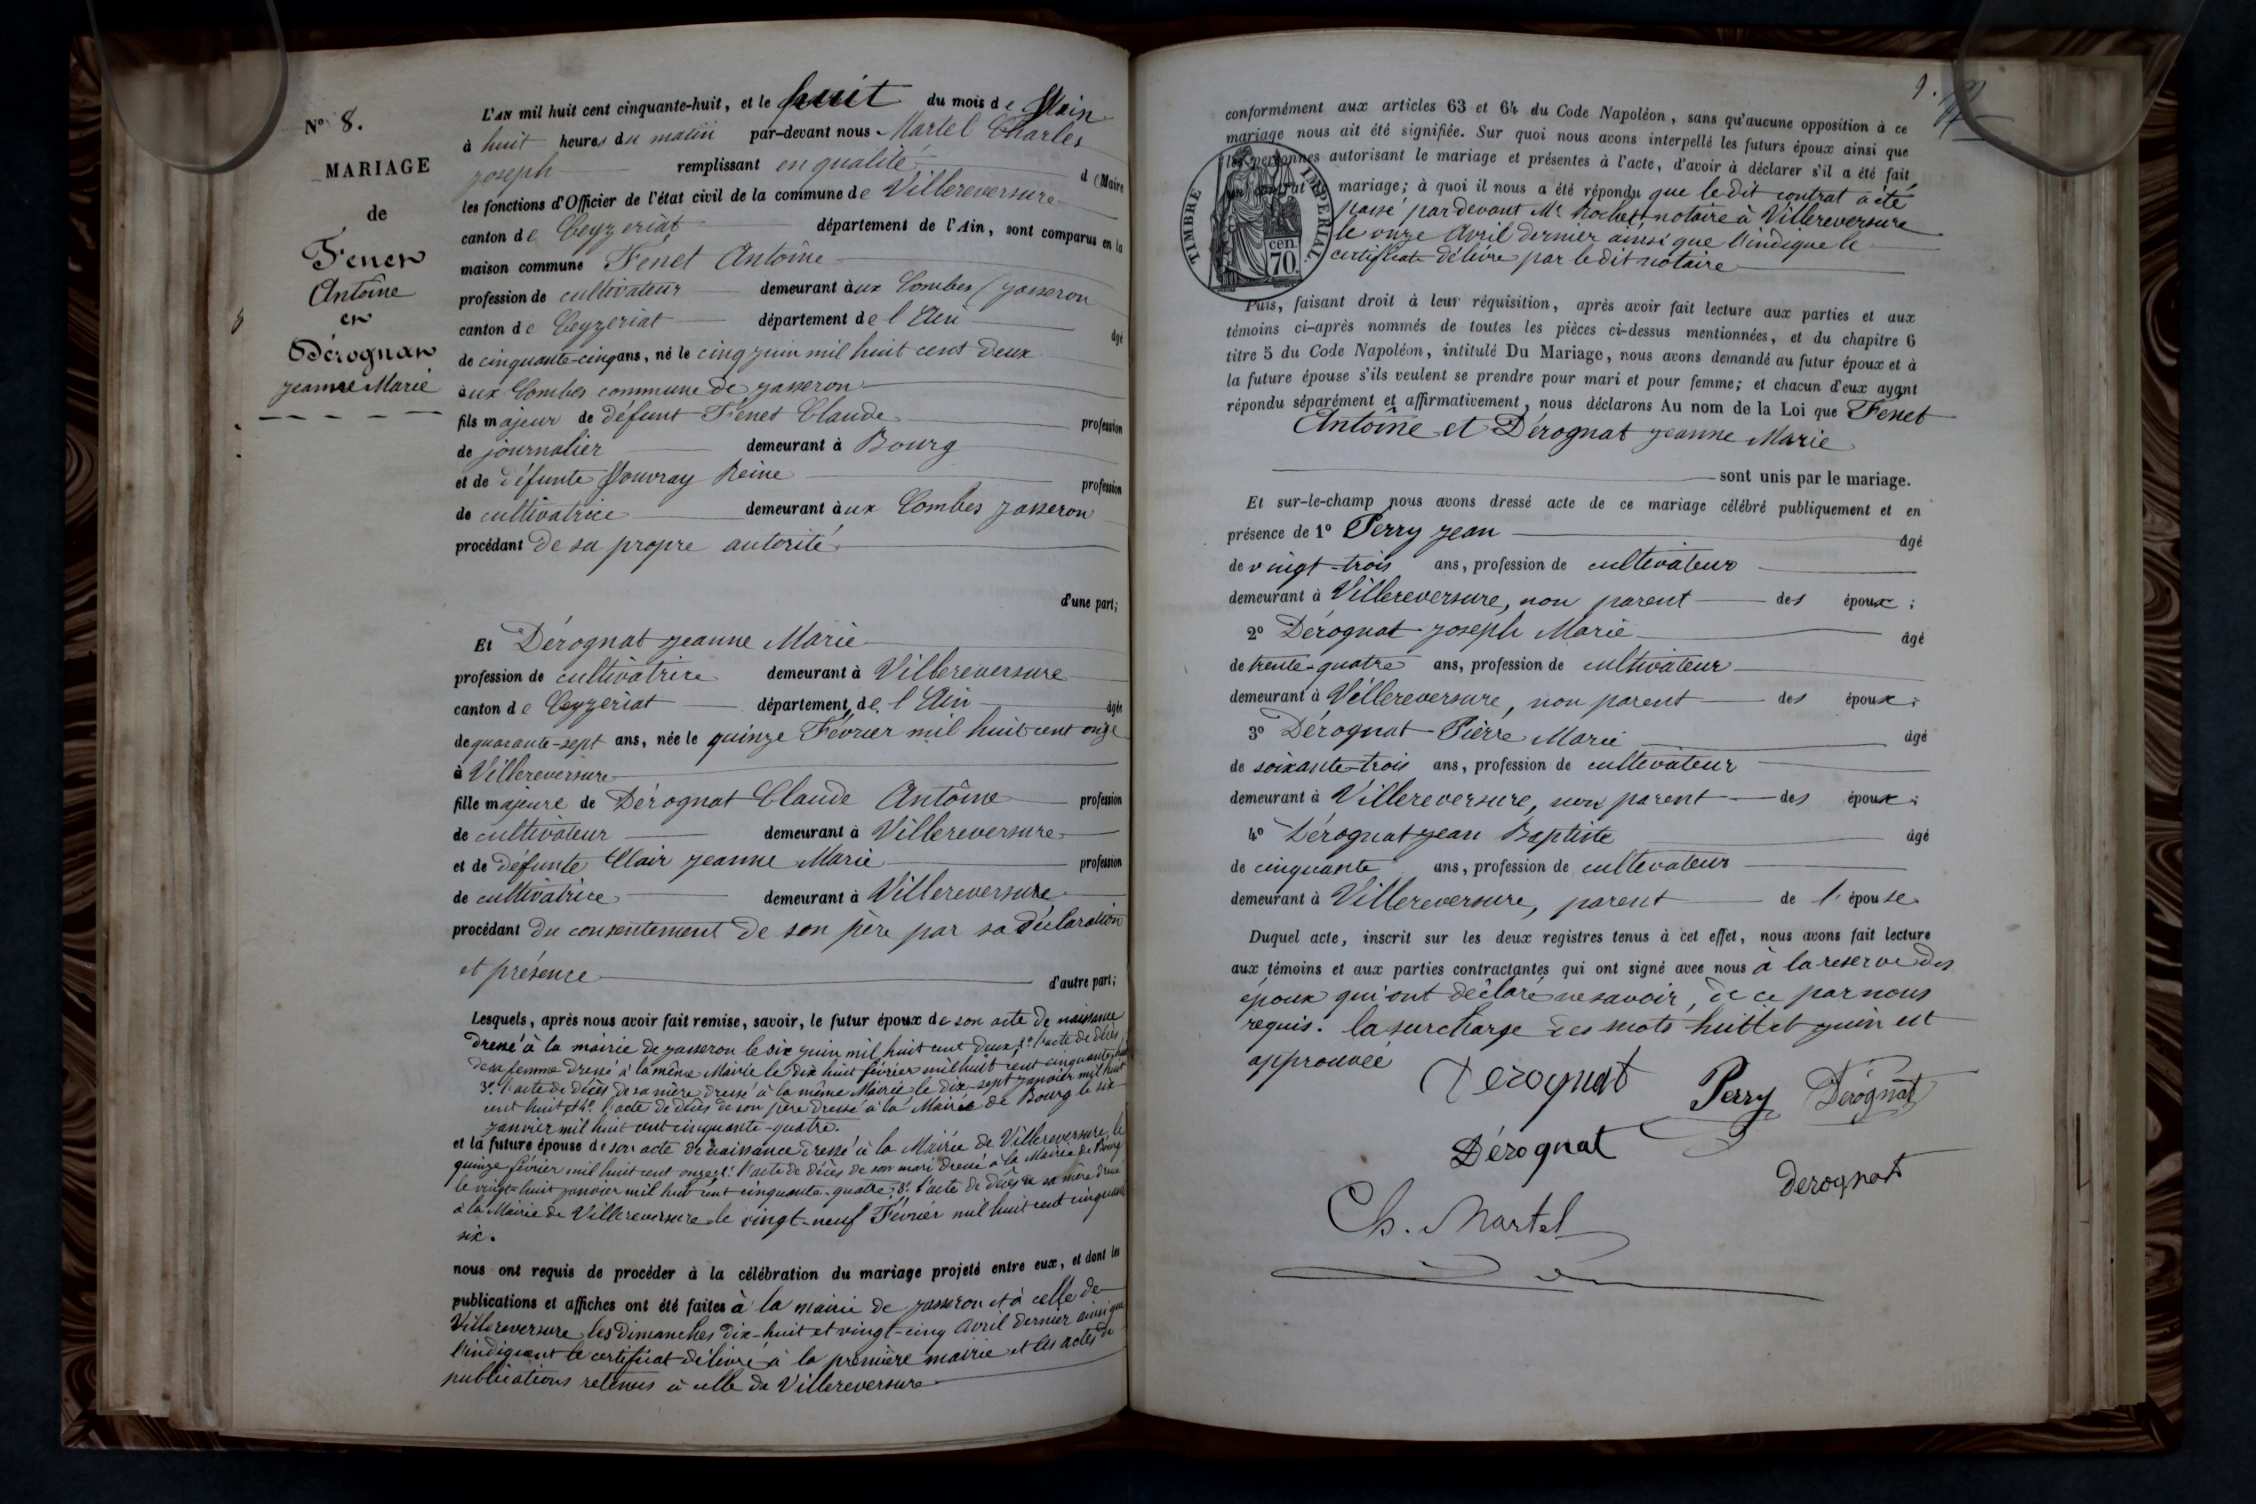 N° 8.
MARIAGE
de
Fenet
Antoine
et
Dérognat
jeanne Marie
L'AN mil huit cent cinquante-huit, et le huit du mois de Juin
à huit heures du matin par-devant nous Martel Charles
joseph remplissant en qualité de Maire
les fonctions d'Officier de l'état civil de la commune de Villereversure
canton de Ceyzeriat département de l'Ain, sont comparus en la
maison commune Fenet Antoine
profession de cultivateur demeurant aux Combes (jasseron
canton de Ceyzeriat département de l'Ain âgé
de cinquante-cinq ans, né le cinq juin mil huit cent deux
aux Combes commune de jasseron
fils majeur de défunt Fenet Claude profession
de journalier demeurant à Bourg
et de défunte Reine profession
de cultivatrice demeurant aux Combes jasseron
procédant de sa propre autorité
d'une part;
Et Dérognat jeanne Marie
profession de cultivatrice demeurant à Villereversure
canton de Ceyzeriat département de l'Ain âgée
de quarante-sept ans, née le quinze Février mil huit cent onze
à Villereversure
fille majeure de Dérognat Claude Antoine profession
de cultivateur demeurant à Villereversure
et de défunte Clair jeanne Marie profession
de cultivatrice demeurant à Villereversure
procédant du consentement de son père par sa déclaration
et présence d'autre part;
Lesquels, après nous avoir fait remise, savoir, le futur époux de son acte de naissance
dressé à la mairie de jasseron le six juin mil huit cent deux, 2° l'acte de décès
de sa femme dressé à la même Mairie le dix huit février mil huit cent cinquante
3° l'acte de décès de sa mère dressé à la même Mairie le dix-sept janvier mil huit
cent huit et 4° l'acte de décès de son père dressé à la Mairie de Bourg le six
janvier mil huit cent cinquante-quatre.
et la future épouse de son acte de naissance dressé à la Mairie de Villereversure le
quinze février mil huit cent onze, 2° l'acte de décès de son mari dressé à la Mairie de Bourg
le vingt-huit janvier mil huit cent cinquante-quatre; 3° l'acte de décès de sa mère dressé
à la Mairie de Villereversure le vingt-neuf Février mil huit cent cinquante
six.
nous ont requis de procéder à la célébration du mariage projeté entre eux, et dont les
publications et affiches ont été faites à la mairie de jasseron et à celle de
Villereversure les dimanches dix-huit et vingt-cinq Avril dernier ainsi que
l'indiquent le certificat délivré à la première mairie et les actes de
publications retenus à celle de Villereversure
9.
conformément aux articles 63 et 64 du Code Napoléon, sans qu'aucune opposition à ce
mariage nous ait été signifiée. Sur quoi nous avons interpellé les futurs époux ainsi que
les personnes autorisant le mariage et présentes à l'acte, d'avoir à déclarer s'il a été fait
un contrat de mariage; à quoi il nous a été répondu que le dit contrat a été
passé par devant Mr Rochet notaire à Villereversure
le onze Avril dernier ainsi que l'indique le
certificat délivré par le dit notaire
TIMBRE IMPERIAL
cen.
70
Puis, faisant droit à leur réquisition, après avoir fait lecture aux parties et aux
témoins ci-après nommés de toutes les pièces ci-dessus mentionnées, et du chapitre 6
titre 5 du Code Napoléon, intitulé Du Mariage, nous avons demandé au futur époux et à
la future épouse s'ils veulent se prendre pour mari et pour femme; et chacun d'eux ayant
répondu séparément et affirmativement, nous déclarons Au nom de la Loi que Fenet
Antoine et Dérognat jeanne Marie
sont unis par le mariage.
Et sur-le-champ nous avons dressé acte de ce mariage célébré publiquement et en
présence de 1° Perry jean âgé
de vingt-trois ans, profession de cultivateur
demeurant à Villereversure, non parent des époux;
2° Dérognat joseph Marie âgé
de trente-quatre ans, profession de cultivateur
demeurant à Villereversure, non parent des époux;
3° Dérognat Pierre Marie âgé
de soixante-trois ans, profession de cultivateur
demeurant à Villereversure, non parent des époux;
4° Dérognat jean Baptiste âgé
de cinquante ans, profession de cultivateur
demeurant à Villereversure, parent de l'épouse
Duquel acte, inscrit sur les deux registres tenus à cet effet, nous avons fait lecture
aux témoins et aux parties contractantes qui ont signé avec nous à la reserve des
époux qui ont déclaré ne savoir, de ce par nous
requis. la surcharge des mots huit et juin est
approuvée
Derognat Perry Dérognat
Dérognat
derognat
Ch. Martel